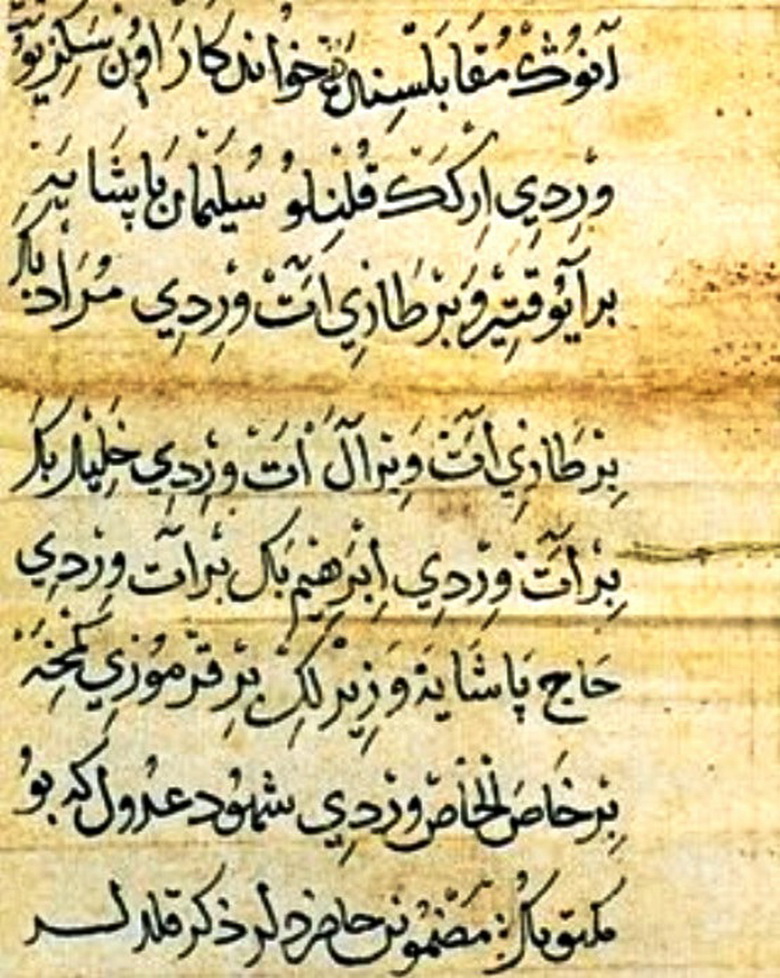 آنوُڭ مُقَابَلَسِنده خواندكار اوُن سَكِز يوُ
وِرْدِي اِركَكْ قُلُنْلوُ سُلَيْمان پاشَايَه
بر آيغوُ قتِيرْ وَبرْ طَازِي اَتْ وِرْدِي مُرَاد بَاك
بِرْ طَازِي اَتْ وَبِرْ اٰلْ اَتْ وِرْدِي خَلِيل بَك
بِرْ اَتْ وِرْدِي اِبْرَهِيمْ بَاك بْرْ اَتْ وِرْدِي
حَاجِ پَاشَايَه وَزِيرْلِكْ بِرْ قِرْمُوزِي كَمْخَه
بِرْ خَاصَ الْخَاصْ وِرْدِي شهُود عدُول كه بوُ
مكتوُبكْ مَضْمُونِن حاضردلر ذكر قلدلر